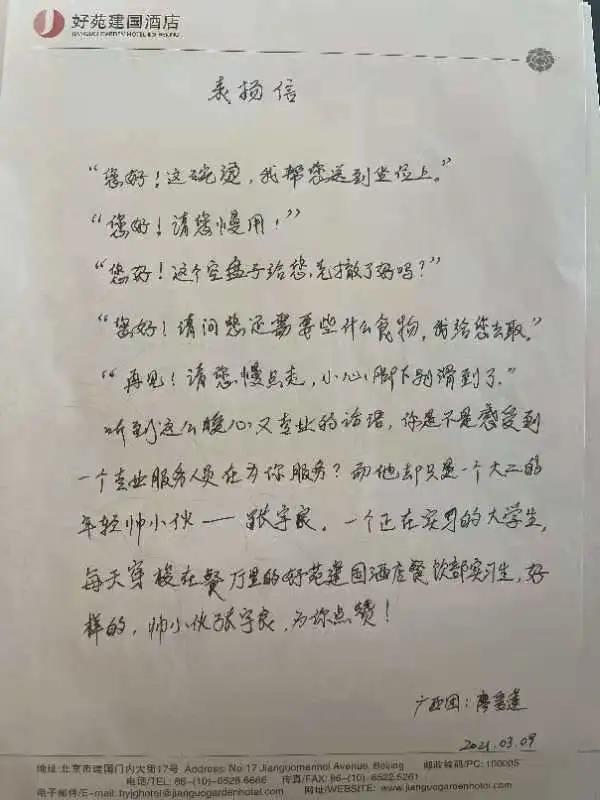 好苑建国酒店
JIANGUO GARDEN HOTEL BEIJING
表扬信
“您好！这碗烫，我帮您送到坐位上。”
“您好！请您慢用！”
“您好！这个空盘子给您先撤了好吗？”
“您好！请问您还需要些什么食物，我给您去取。”
“再见！请您慢点走，小心脚下别滑到了。”
听到这么暖心又专业的话语，你是不是感受到
一个专业服务人员在为你服务？而他却只是一个大二的
年轻帅小伙——张宇良。一个正在实习的大学生，
每天穿梭在餐厅里的好苑建国酒店餐饮部实习生，好
样的，帅小伙张宇良，为你点赞！
广西团：廖
2021.03.09
地址:北京市建国门内大街17号 Address: No 17 Jianguomennei Avenue, Beijing 邮政编码/PC: 100005
电话/TEL: 86-(10)-6528 6666 传真/FAX: 86-(10)-6522 5261
电子邮件/E-mail: hyjghotel@jianguogardenhotel.com 网址/WEBSITE: www.jianguogardenhotel.com